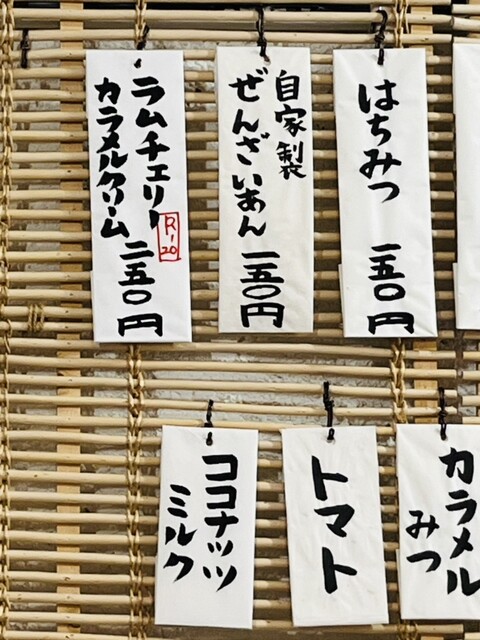 はちみつ 一五〇円
自家製
ぜんざいあん 一五〇円
ラムチェリー
R-20
カラメルクリーム 二五〇円
カラメル
みつ
トマト
ココナッツ
ミルク